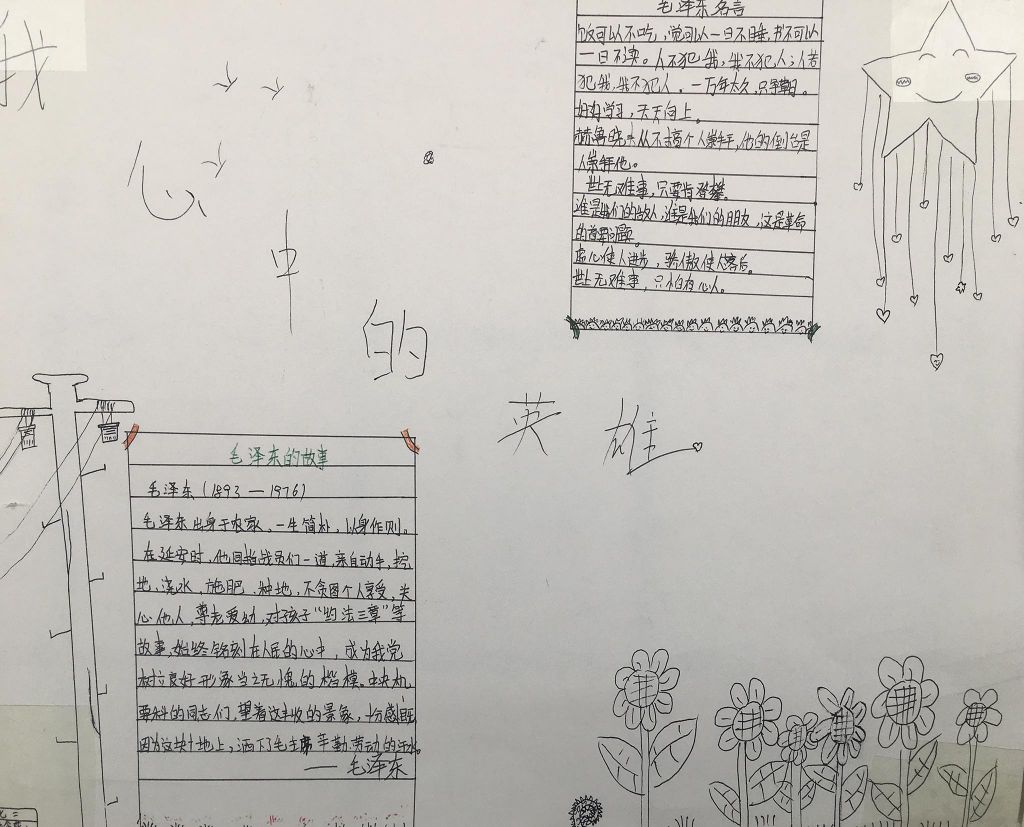 我
心
中
的
英
雄
毛泽东名言
饭可以不吃，觉可以一日不睡，书不可以
一日不读。人不犯我，我不犯人；人若
犯我，我不犯人。一万年太久，只争朝。
好好学习，天天向上。
赫鲁晓夫从不搞个人崇拜，他的倒台是
人崇拜他。
世上无难事，只要肯登攀。
谁是我们的敌人，谁是我们的朋友，这是革命
的首要问题。
虚心使人进步，骄傲使人落后。
世上无难事，只怕有心人。
毛泽东的故事
毛泽东（1893—1976）
毛泽东出身于农家，一生简朴，以身作则。
在延安时，他同指战员们一道，亲自动手，挖
地、浇水、施肥、种地，不贪图个人享受，关
心他人，尊老爱幼，对孩子“约法三章”等
故事，始终铭刻在人民的心中，成为我党
树立良好形象当之无愧的楷模。中央机
要科的同志们，望着这丰收的景象，十分感慨
因为这块土地上，洒下了毛主席辛勤劳动的汗水。
——毛泽东